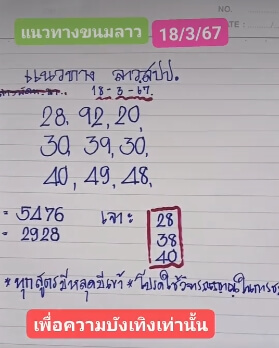 NO.
แนวทางขนมลาว 18/3/67
DATE :
แนวทาง ลาวสปป.
18-3-67.
28, 92, 20,
30, 39, 30,
40, 49, 48,
= 5476 เจาะ: 28
= 2928 38
40
*ทุกสูตรมีหลุดมีเข้า*โปรดใช้วิจารณญาณในการ
เพื่อความบังเทิงเท่านั้น